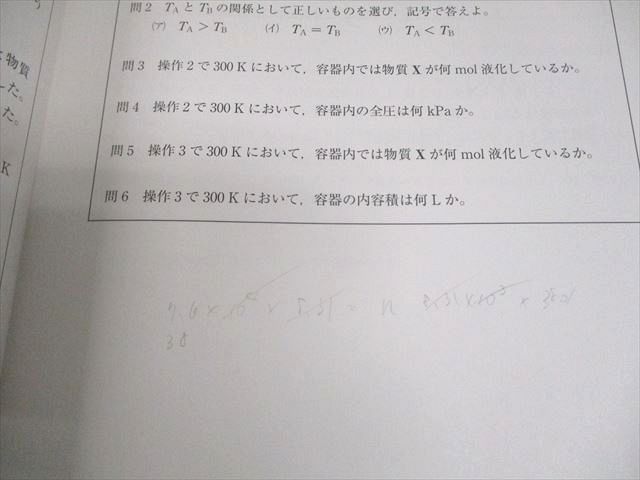 問2 T_A と T_B の関係として正しいものを選び,記号で答えよ。
(ア) T_A > T_B (イ) T_A = T_B (ウ) T_A < T_B
物質
した。
た。
K
問3 操作2で300 Kにおいて,容器内では物質Xが何mol液化しているか。
問4 操作2で300 Kにおいて,容器内の全圧は何kPaか。
問5 操作3で300 Kにおいて,容器内では物質Xが何mol液化しているか。
問6 操作3で300 Kにおいて,容器の内容積は何Lか。
38